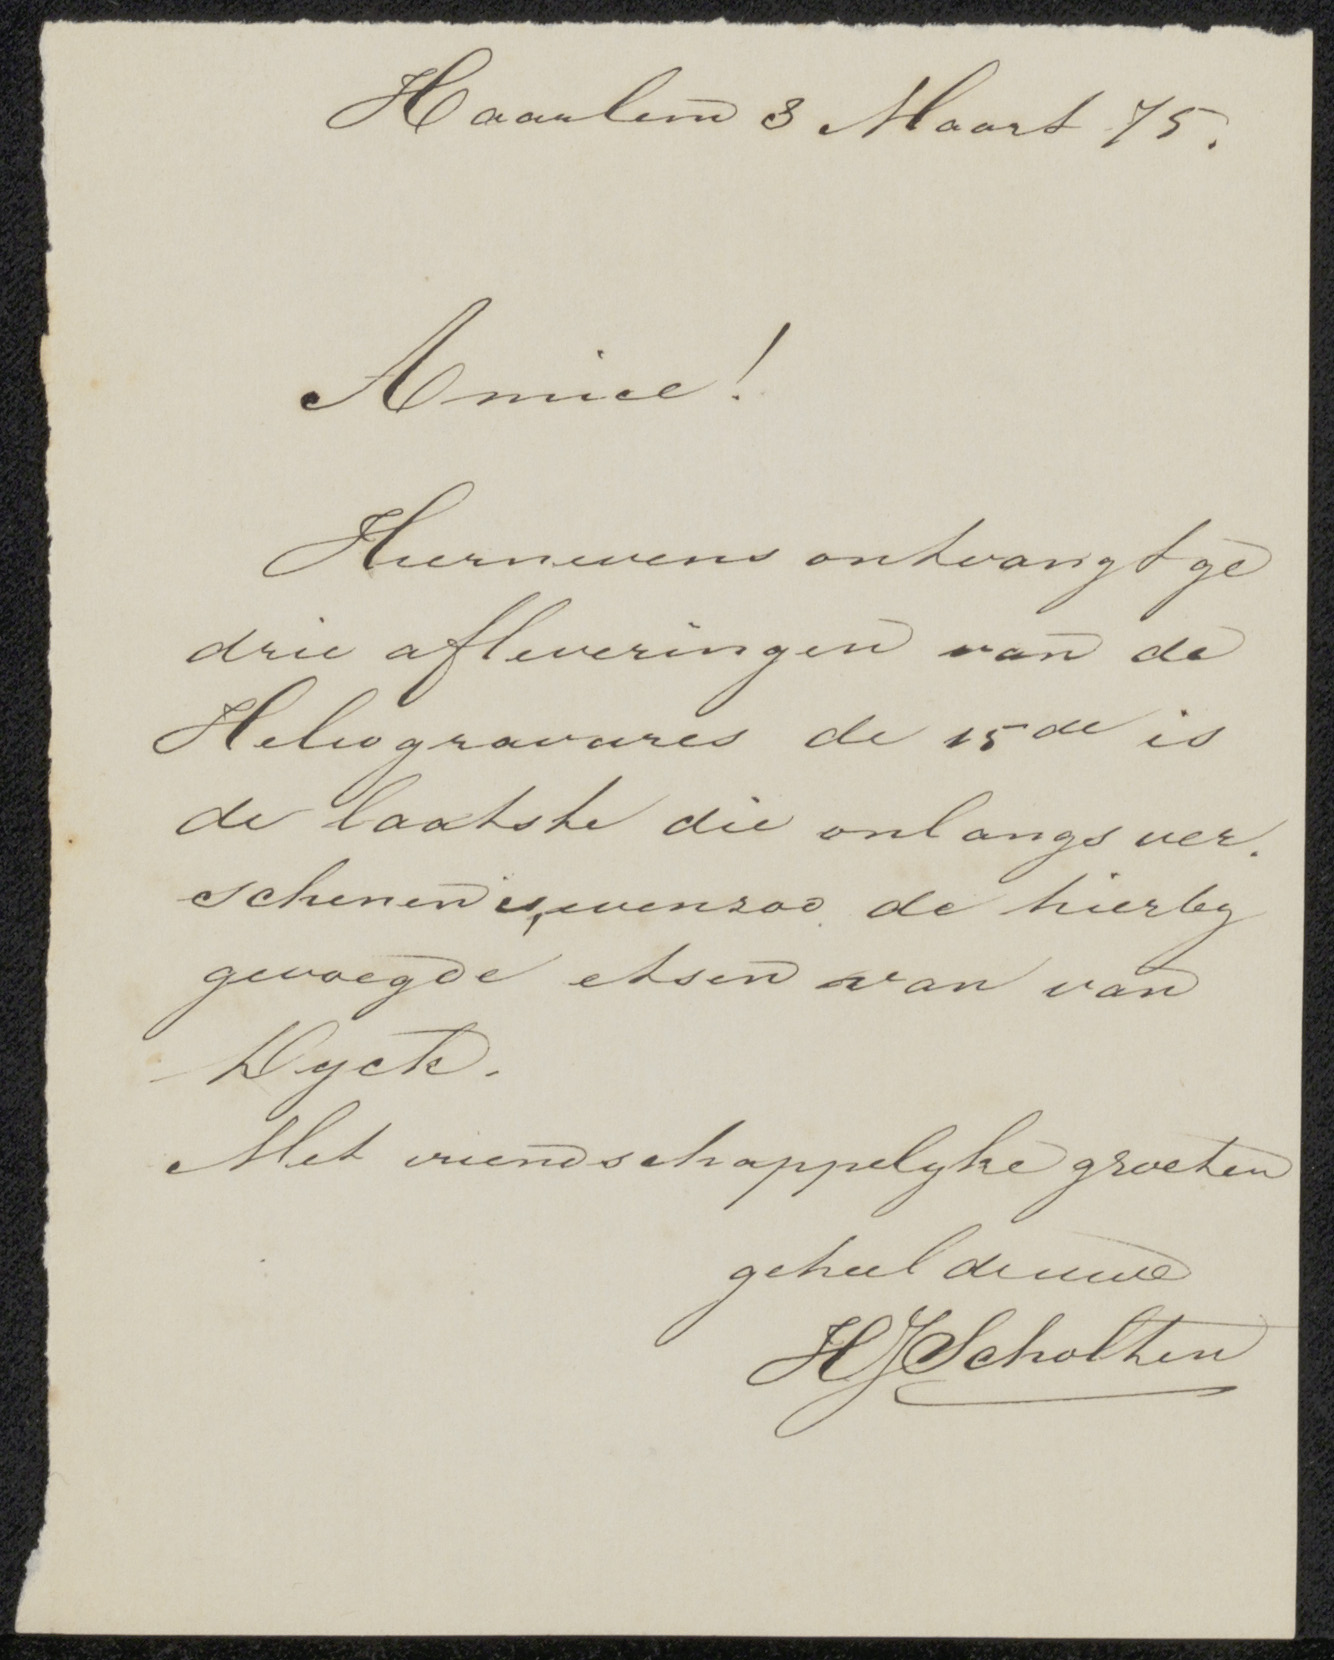 Haarlem 3 Maart 75.
Amice!
Hiernevens ontvangt ge
drie afleveringen van de
Heliogravures de 15de is
de laatste die onlangs ver.
schenen is, evenzoo de hierby
gevoegde etsen van van
Dyck.
Met vriendschappelyke groeten
geheel de uwe
HJScholten